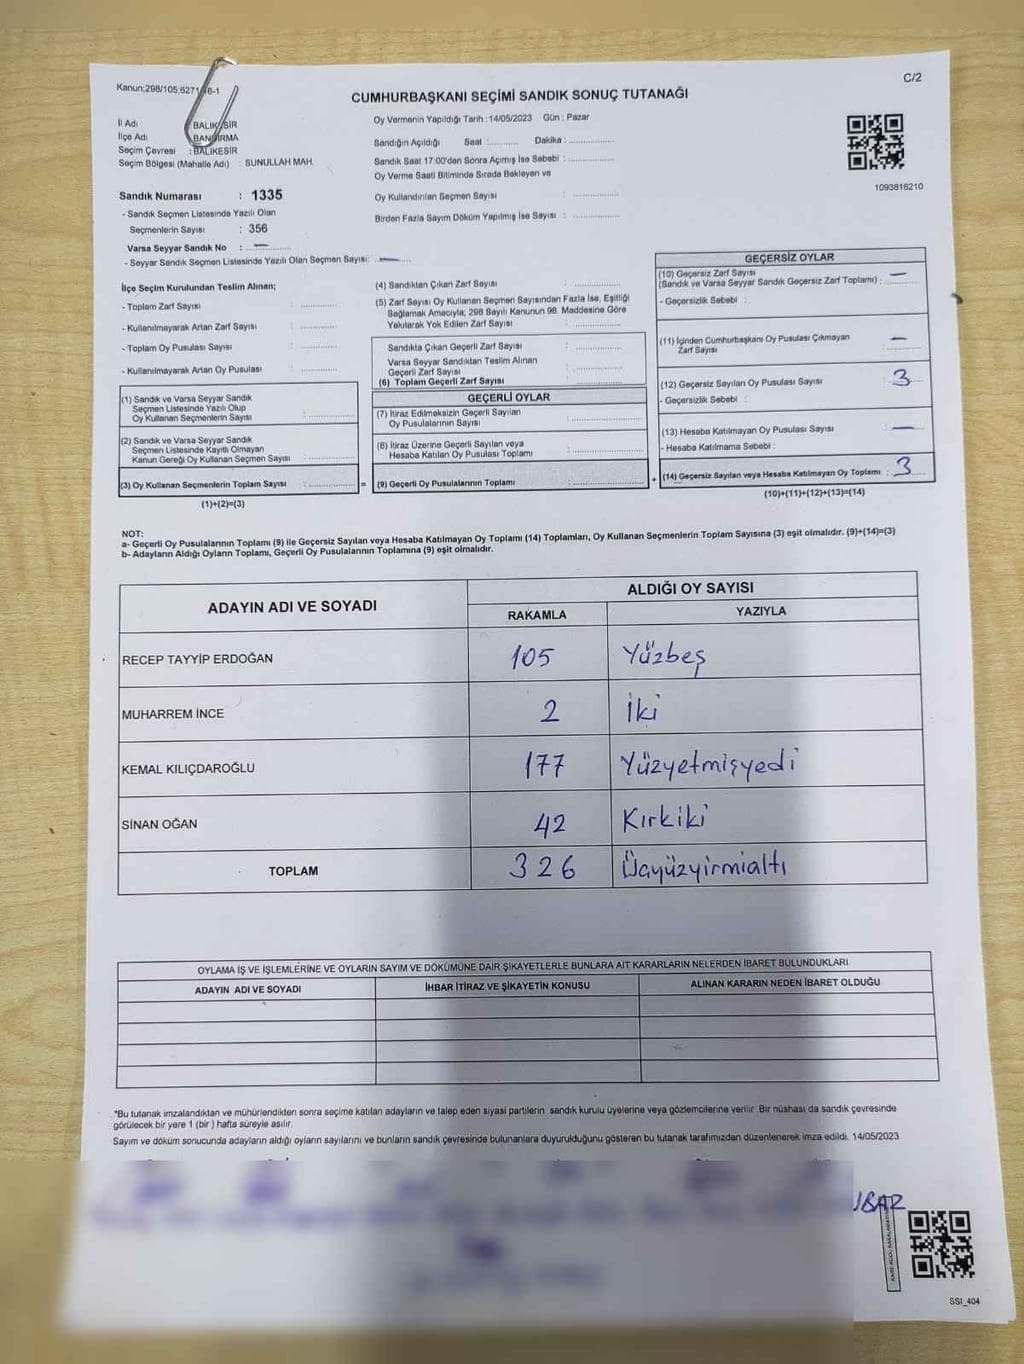 C/2
CUMHURBAŞKANI SEÇİMİ SANDIK SONUÇ TUTANAĞI
İl Adı
İlçe Adı
Seçim Çevresi : BALIKESİR
Seçim Bölgesi (Mahalle Adı) : SUNULLAH MAH.
Sandık Numarası : 1335
- Sandık Seçmen Listesinde Yazılı Olan
Seçmenlerin Sayısı : 356
Varsa Seyyar Sandık No : —
- Seyyar Sandık Seçmen Listesinde Yazılı Olan Seçmen Sayısı: —
Oy Vermenin Yapıldığı Tarih : 14/05/2023 Gün : Pazar
Sandığın Açıldığı Saat :.......... Dakika :...............
Sandık Saat 17:00'den Sonra Açımış İse Sebebi :...............
Oy Verme Saati Bitiminde Sırada Bekleyen ve
Oy Kullandırılan Seçmen Sayısı : ...............
Birden Fazla Sayım Döküm Yapılmış İse Sayısı : ...............
1093816210
İlçe Seçim Kurulundan Teslim Alınan;
- Toplam Zarf Sayısı : ............
- Kullanılmayarak Artan Zarf Sayısı : ............
- Toplam Oy Pusulası Sayısı : ............
- Kullanılmayarak Artan Oy Pusulası : ............
(1) Sandık ve Varsa Seyyar Sandık
Seçmen Listesinde Yazılı Olup
Oy Kullanan Seçmenlerin Sayısı :...............
(2) Sandık ve Varsa Seyyar Sandık
Seçmen Listesinde Kayıtlı Olmayan
Kanun Gereği Oy Kullanan Seçmen Sayısı :...............
(3) Oy Kullanan Seçmenlerin Toplam Sayısı :............... =
(1)+(2)=(3)
(4) Sandıktan Çıkan Zarf Sayısı : ...............
(5) Zarf Sayısı Oy Kullanan Seçmen Sayısından Fazla İse, Eşitliği
Sağlamak Amacıyla; 298 Sayılı Kanunun 98. Maddesine Göre
Yakılarak Yok Edilen Zarf Sayısı : ...............
Sandıkta Çıkan Geçerli Zarf Sayısı : ...............
Varsa Seyyar Sandıktan Teslim Alınan
Geçerli Zarf Sayısı : ...............
(6) Toplam Geçerli Zarf Sayısı : ...............
GEÇERLİ OYLAR
(7) İtiraz Edilmeksizin Geçerli Sayılan
Oy Pusulalarının Sayısı :...............
(8) İtiraz Üzerine Geçerli Sayılan veya
Hesaba Katılan Oy Pusulası Toplamı :...............
(9) Geçerli Oy Pusulalarının Toplamı :............... +
GEÇERSİZ OYLAR
(10) Geçersiz Zarf Sayısı —
(Sandık ve Varsa Seyyar Sandık Geçersiz Zarf Toplamı) :........
- Geçersizlik Sebebi :
(11) İçinden Cumhurbaşkanı Oy Pusulası Çıkmayan —
Zarf Sayısı :........
(12) Geçersiz Sayılan Oy Pusulası Sayısı : 3
- Geçersizlik Sebebi :
(13) Hesaba Katılmayan Oy Pusulası Sayısı : —
- Hesaba Katılmama Sebebi :
(14) Geçersiz Sayılan veya Hesaba Katılmayan Oy Toplamı : 3
(10)+(11)+(12)+(13)=(14)
NOT:
a- Geçerli Oy Pusulalarının Toplamı (9) ile Geçersiz Sayılan veya Hesaba Katılmayan Oy Toplamı (14) Toplamları, Oy Kullanan Seçmenlerin Toplam Sayısına (3) eşit olmalıdır. (9)+(14)=(3)
b- Adayların Aldığı Oyların Toplamı, Geçerli Oy Pusulalarının Toplamına (9) eşit olmalıdır.
ADAYIN ADI VE SOYADI
ALDIĞI OY SAYISI
RAKAMLA YAZIYLA
RECEP TAYYİP ERDOĞAN 105 Yüzbeş
MUHARREM İNCE 2 İki
KEMAL KILIÇDAROĞLU 177 Yüzyetmişyedi
SİNAN OĞAN 42 Kırkiki
TOPLAM 326 Üçyüzyirmialtı
OYLAMA İŞ VE İŞLEMLERİNE VE OYLARIN SAYIM VE DÖKÜMÜNE DAİR ŞİKAYETLERLE BUNLARA AİT KARARLARIN NELERDEN İBARET BULUNDUKLARI
ADAYIN ADI VE SOYADI İHBAR İTİRAZ VE ŞİKAYETİN KONUSU ALINAN KARARIN NEDEN İBARET OLDUĞU
"Bu tutanak imzalandıktan ve mühürlendikten sonra seçime katılan adayların ve talep eden siyasi partilerin sandık kurulu üyelerine veya gözlemcilerine verilir. Bir nüshası da sandık çevresinde
görülecek bir yere 1 (bir ) hafta süreyle asılır.
Sayım ve döküm sonucunda adayların aldığı oyların sayılarını ve bunların sandık çevresinde bulunanlara duyurulduğunu gösteren bu tutanak tarafımızdan düzenlenerek imza edildi. 14/05/2023
SSI_404